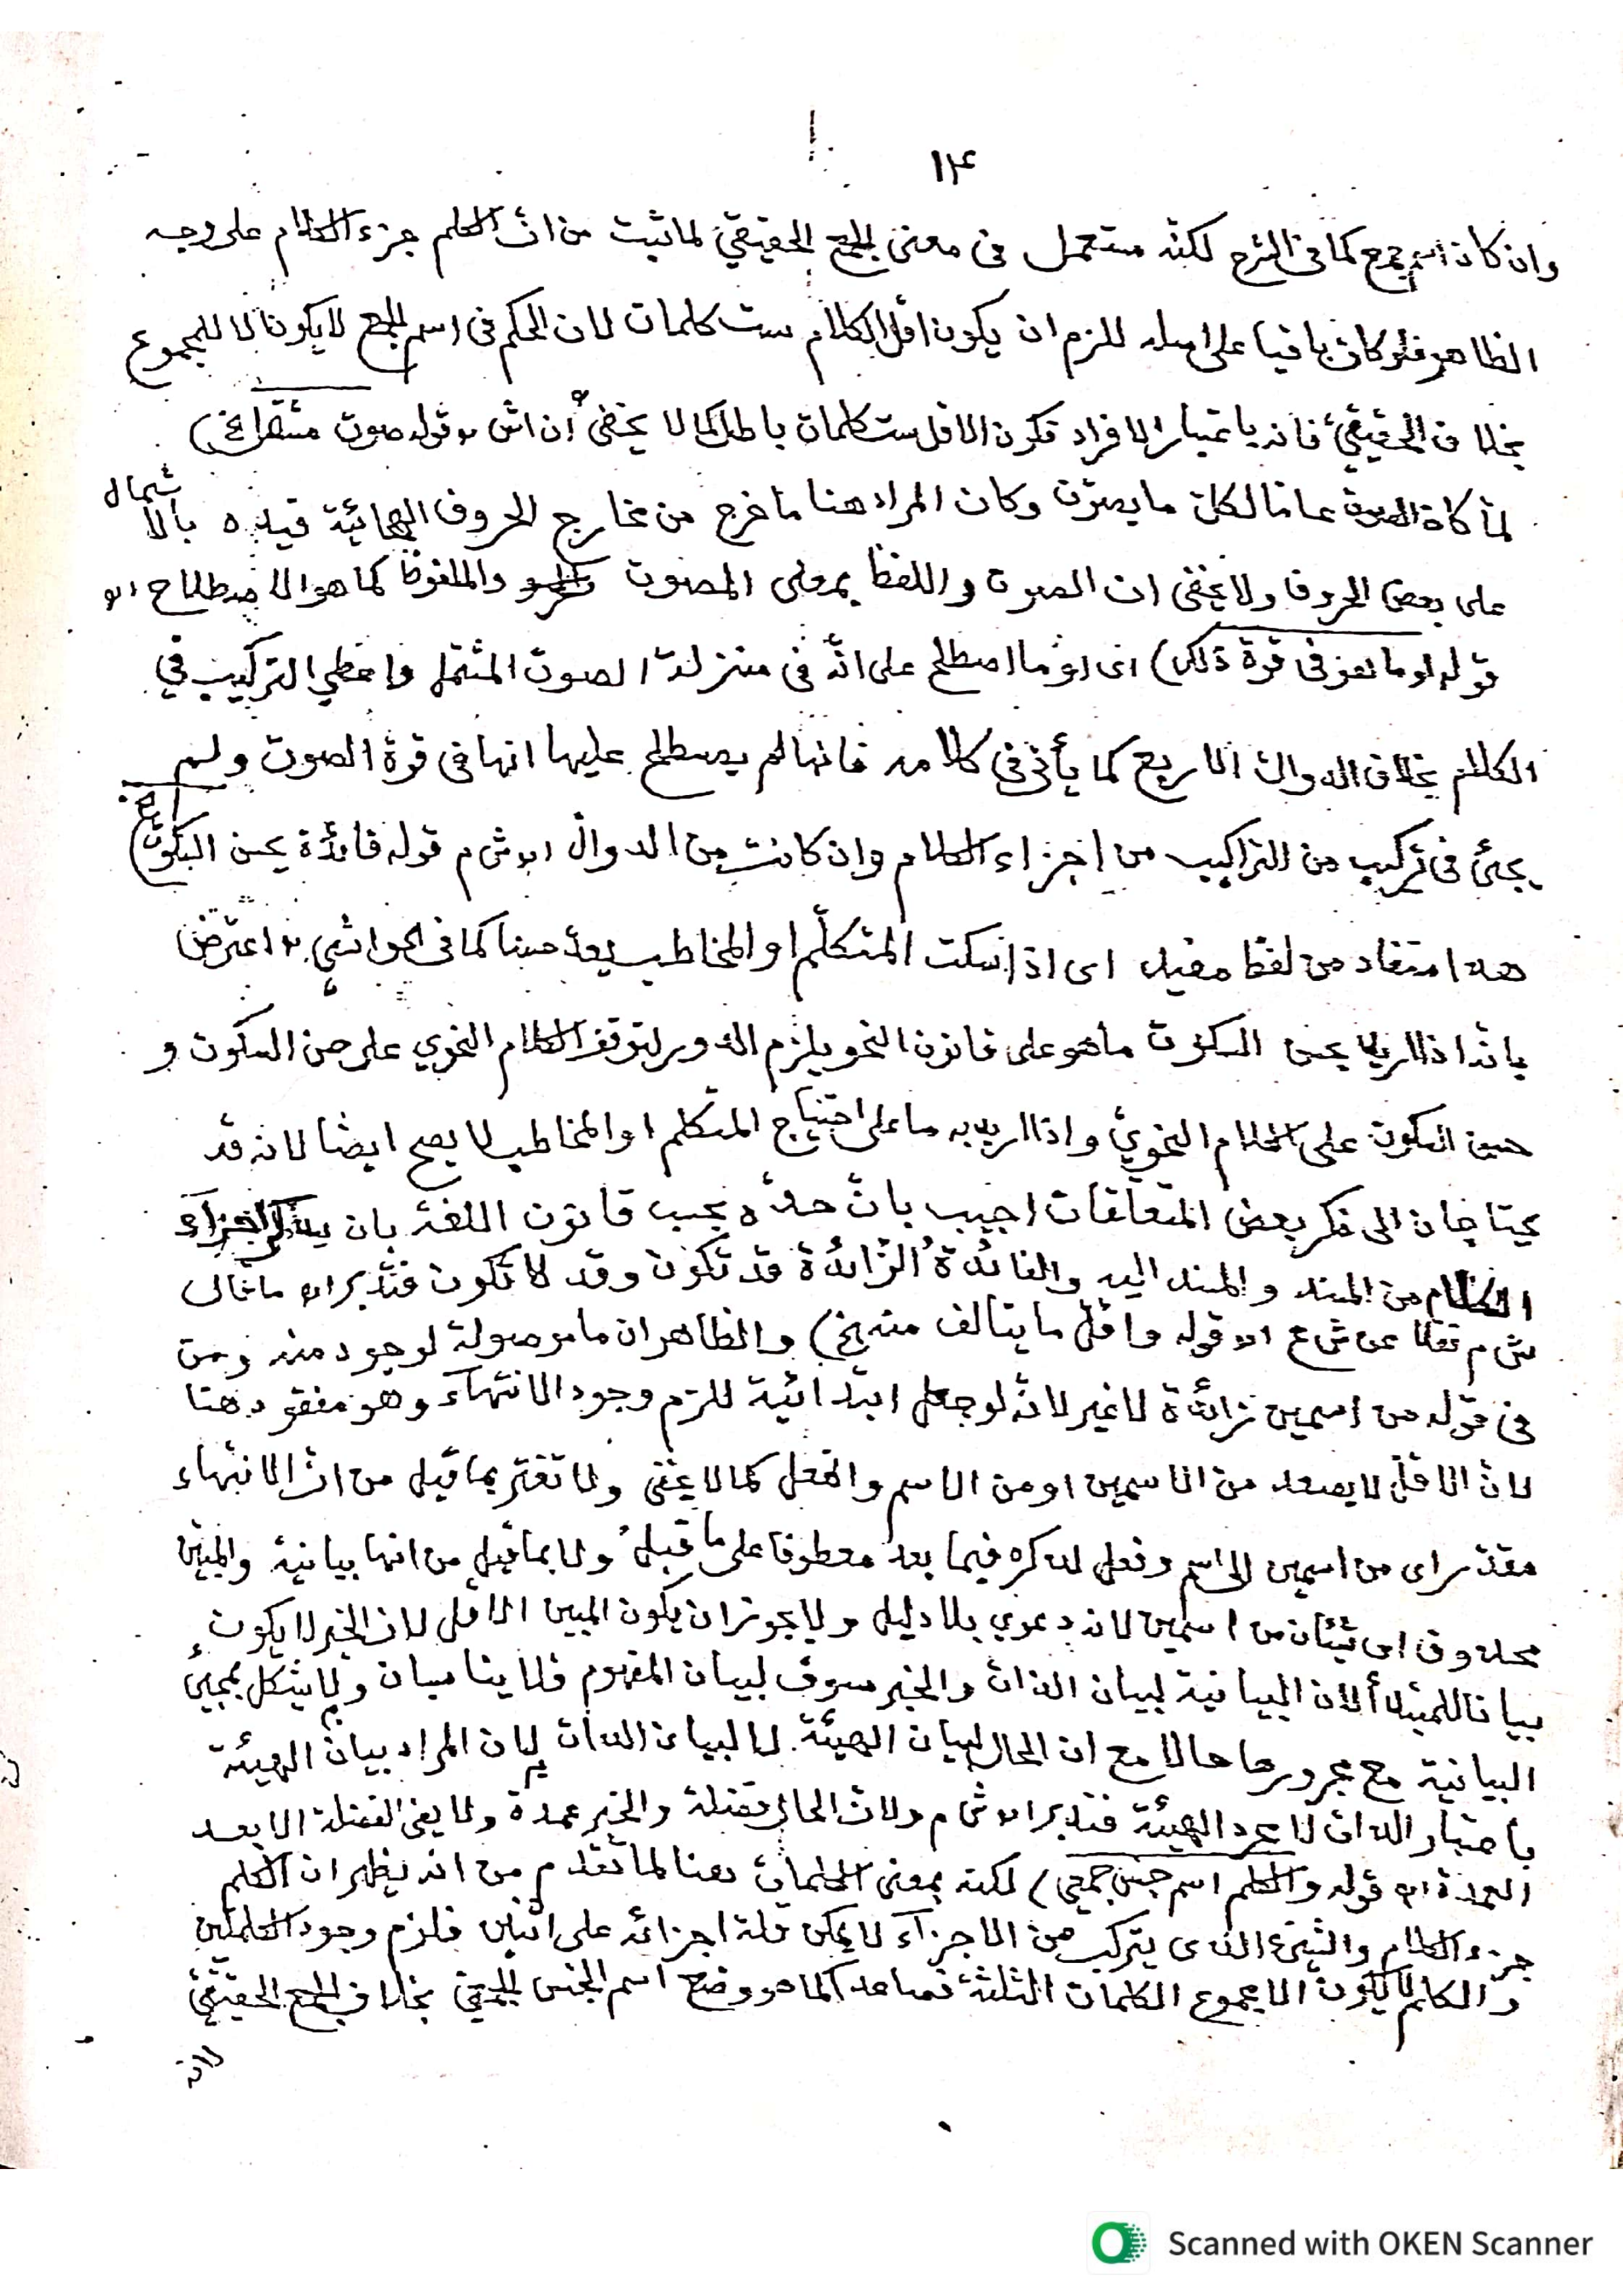 ١٤
وان كان اسم جمع كما فى الشرح لكنّه مستعمل فى معنى الجمع الحقيقيّ لما ثبت من انّ الكلم جزء الكلام على وجه
الظاهر فلو كان باقيا على اصله للزم ان يكون اقلّ الكلام ست كلمات لان الحكم فى اسم الجمع لا يكون الا للمجموع
بخلاف الحقيقيّ فانه باعتبار الافراد فكون الاقل ست كلمات باطل كما لا يخفى قوله صوت مشتمل الخ)
لمّا كان الصوت عامّا لكلّ ما يصوّت وكان المراد هنا ما خرج من مخارج الحروف الهجائية قيده بالاشتمال
على بعض الحروف ولا يخفى ان الصوت واللفظ بمعنى المصوت والملفوظ كما هو الاصطلاح اه
قوله او ما هو فى قوة ذلك) اى او ما اصطلح على انّه فى منزلة الصوت المشتمل واعطي التركيب في
الكلام بخلاف الدوالّ الاربع كما يأتى فى كلامه فانها لم يصطلح عليها انها فى قوة الصوت ولم
يجئ فى تركيب من التراكيب من اجزاء الكلام وان كانت من الدوالّ اه ش م قوله فائدة يحسن السكوت الخ)
هذا مستفاد من لفظ مفيد اى اذا سكت المتكلّم او المخاطب يعدّ حسنا كما فى الحواشي اعترض
بانّه اذا اريد بحسن السكوت ما هو على قانون النحو يلزم الدور لتوقف الكلام النحوي على حسن السكوت و
حسن السكوت على الكلام النحويّ واذا اريد به ما على احتياج المتكلم او المخاطب لا يصح ايضا لانه قد
يحتاجان الى ذكر بعض المتعلقات اجيب بانّ حدّه بحسب قانون اللغة بان يذكر اجزاء
الكلام من المسند والمسند اليه والفائدة الزّائدة قد تكون وقد لا تكون فتدبر اه ما قال
ش م نقلا عن ش ع اه قوله واقلّ ما يتالف منه الخ) والظاهر ان ما موصولة لوجود منه ومن
فى قوله من اسمين زائدة لا غير لانّه لو جعل ابتدائية للزم وجود الانتهاء وهو مفقود هنا
لانّ الاقلّ لا يصعد من الاسمين او من الاسم والفعل كما لا يخفى ولا تغتر بما قيل من انّ الانتهاء
مقدّر اى من اسمين الى اسم وفعل لذكره فيما بعد معطوفا على ما قبله ولا بما قيل من انها بيانية والمبيّن
محذوف اى شيئان من اسمين لانه دعوي بلا دليل ولا يجوز ان يكون المبين الاقل لان الخبر لا يكون
بيانا للمبتدأ لان البيانية لبيان الذات والخبر مسوق لبيان المفهوم فلا يناسبان ولا يشكل بمجئ
البيانية مع مجرورها حالا مع ان الحال لبيان الهيئة لا لبيان الذات لان المراد بيان الهيئة
باعتبار الذات لا مجرد الهيئة فتدبر اه ش م ولانّ الحال فضلة والخبر عمدة ولا يغنى الفضلة الا بعد
العمدة اه قوله والكلم اسم جنس جمعي) لكنه بمعنى الكلمات هنا لما تقدم من انه يظهر ان الكلم
جزء الكلام والشئ الذى يتركب من الاجزاء لا يمكن قلة اجزائه على اثنين فلزم وجود الكلمتين
والكلم لا يكون الا مجموع الكلمات الثلثة فصاعدا كما هو وضع اسم الجنس الجمعيّ بخلاف الجمع الحقيقيّ
لانه
Scanned with OKEN Scanner